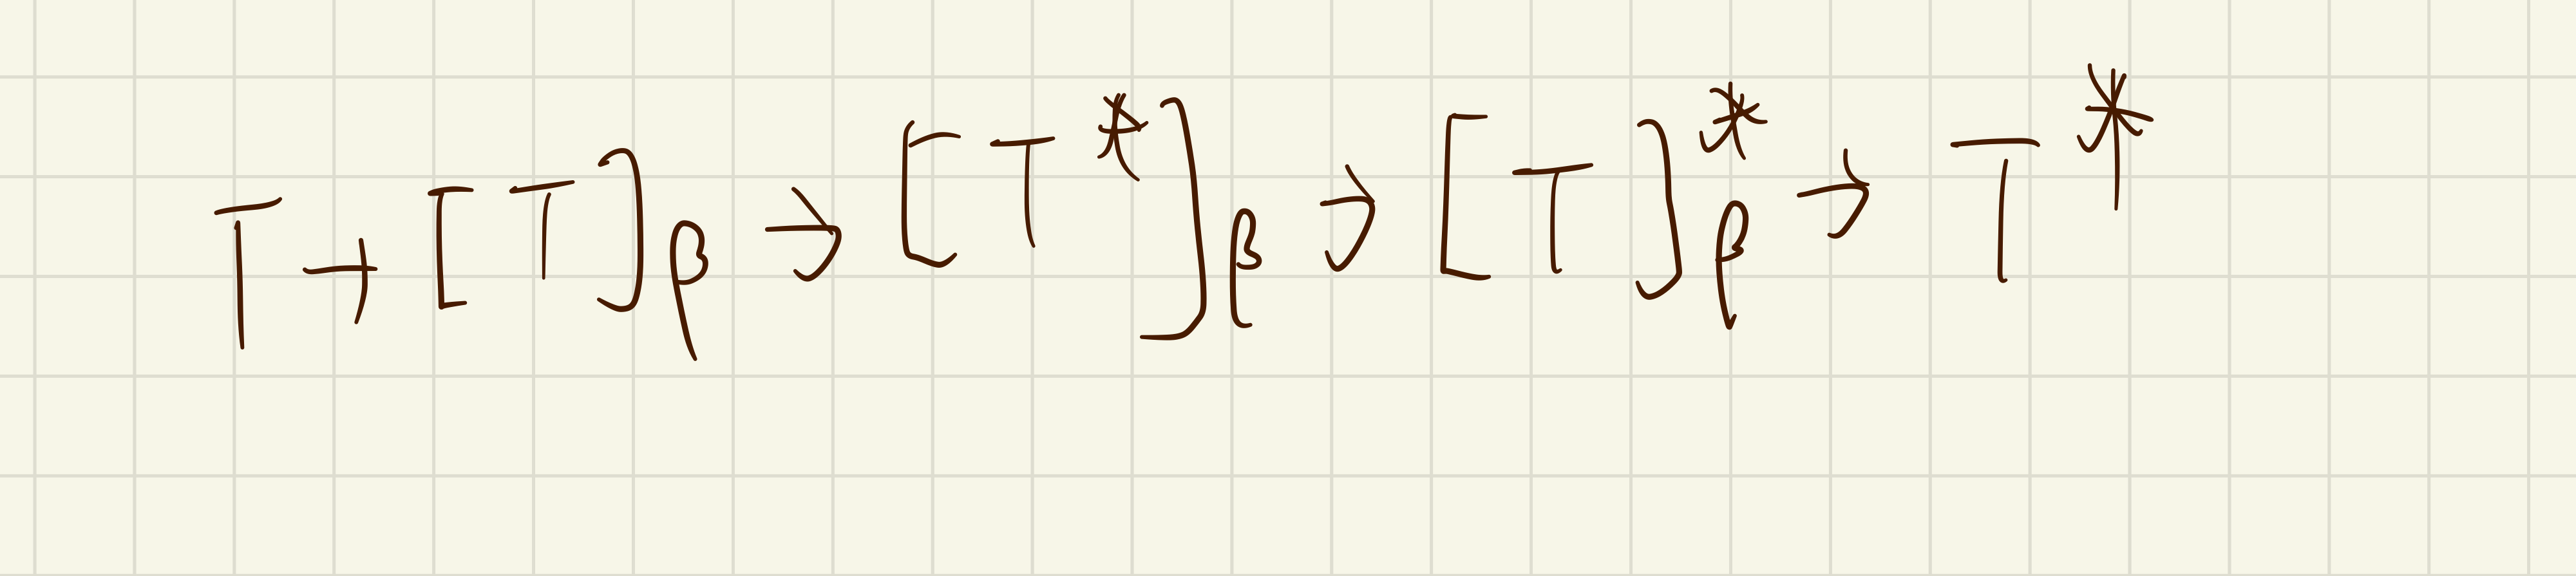 T → [T]β → [T*]β → [T]*β → T*